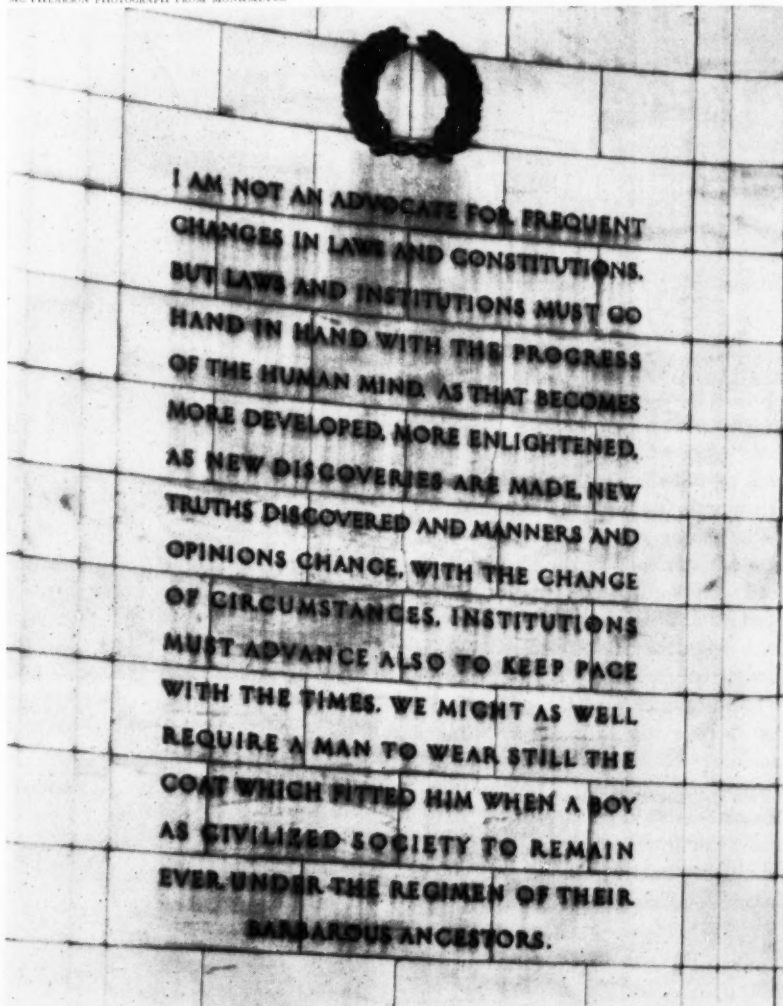 PHOTOGRAPH FROM
I AM NOT AN ADVOCATE FOR FREQUENT
CHANGES IN LAWS AND CONSTITUTIONS.
BUT LAWS AND INSTITUTIONS MUST GO
HAND IN HAND WITH THE PROGRESS
OF THE HUMAN MIND. AS THAT BECOMES
MORE DEVELOPED, MORE ENLIGHTENED,
AS NEW DISCOVERIES ARE MADE, NEW
TRUTHS DISCOVERED AND MANNERS AND
OPINIONS CHANGE, WITH THE CHANGE
OF CIRCUMSTANCES, INSTITUTIONS
MUST ADVANCE ALSO TO KEEP PACE
WITH THE TIMES. WE MIGHT AS WELL
REQUIRE A MAN TO WEAR STILL THE
COAT WHICH FITTED HIM WHEN A BOY
AS CIVILIZED SOCIETY TO REMAIN
EVER UNDER THE REGIMEN OF THEIR
BARBAROUS ANCESTORS.